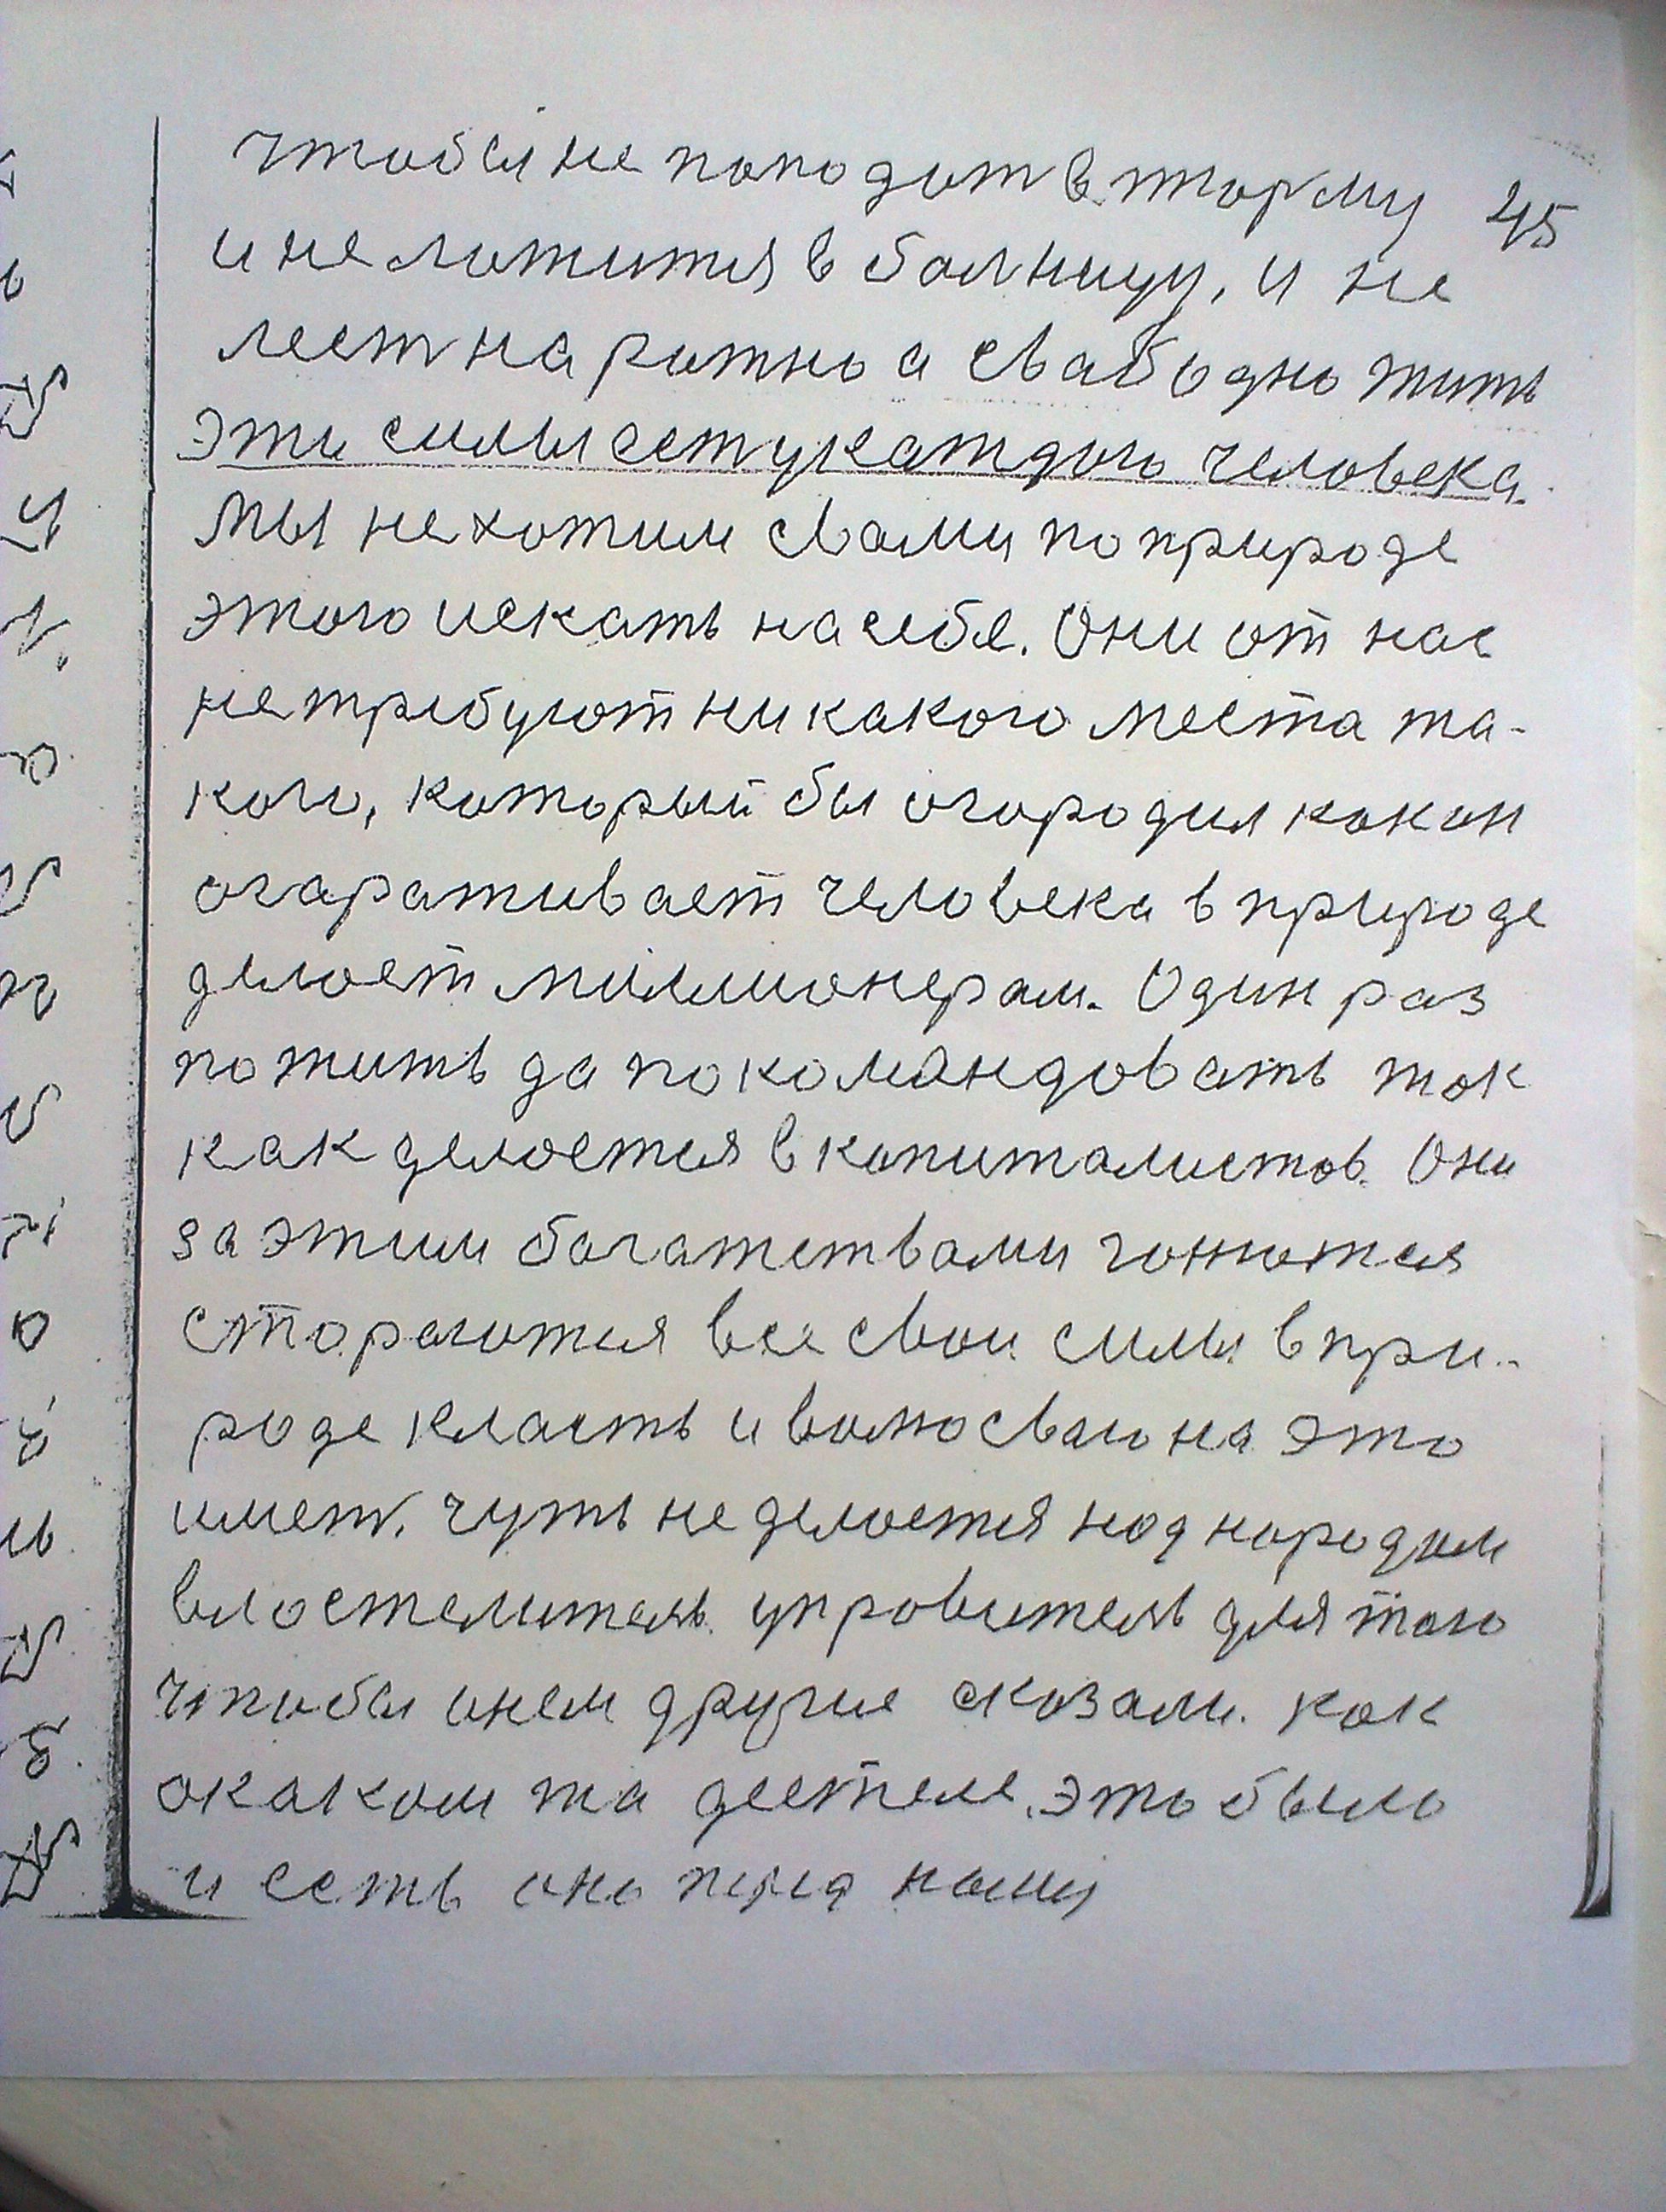 чтобы не поподат в тюрму 45
и не ложится в болницу, и не
лест на рожно а свабодно жить
эти силы сет укаждого человека.
Мы не хотим свами по природе
этого искать на себе. Они от нас
не трибуют ни какого места та-
кого, который бы огородил как он
огараживает человека в природе
делоет миллионерам. Один раз
пожить да покомандовать так
как делоется в копиталистов. Они
за этими богатствами гонются
стораются все свои силы в при-
роде класть и волю сваю на это
имет, чуть не делоется над народом
влостелитель управитель для того
чтобы онем другие сказали. как
окаком та деетеле. это было
и есть оно перед нами